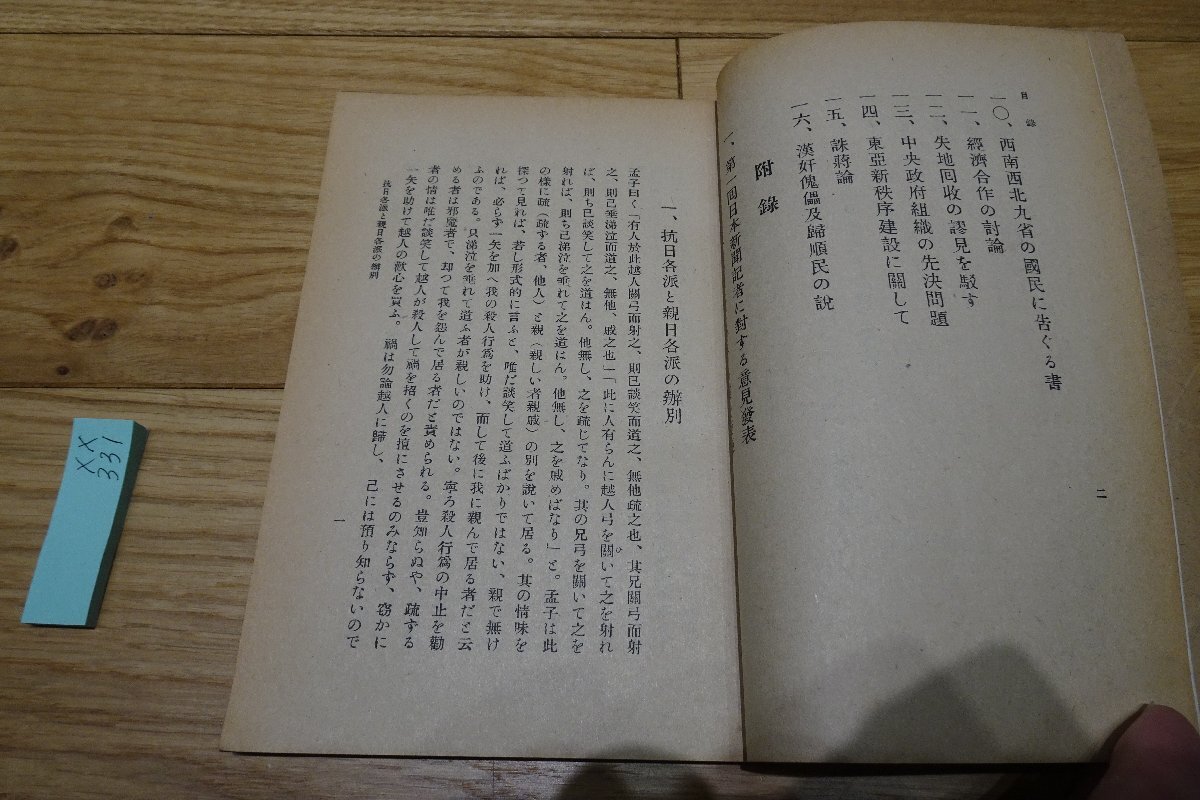 目錄
一〇、西南西北九省の國民に告ぐる書
一一、經濟合作の討論
一二、失地回收の謬見を駁す
一三、中央政府組織の先決問題
一四、東亞新秩序建設に關して
一五、誅蔣論
一六、漢奸傀儡及歸順民の說
附錄
一、第一回日本新聞記者に對する意見發表
二
一、抗日各派と親日各派の辦別
孟子曰く「有人於此越人關弓而射之、則己談笑而道之、無他疏之也、其兄關弓而射
之、則己垂涕泣而道之、無他、戚之也」「此に人有らんに越人弓を關いて之を射れ
ば、則ち己談笑して之を道はん。他無し、之を疏じてなり。其の兄弓を關いて之を
射れば、則ち己涕泣を垂れて之を道はん。他無し、之を戚めばなり」と。孟子は此
の樣に疏(疏する者、他人)と親(親しい者親戚)の別を說いて居る。其の情味を
探つて見れば、若し形式的に言ふと、唯だ談笑して道ふばかりではない、親で無け
れば、必らず一矢を加へ我の殺人行爲を助け、而して後に我に親んで居る者だと云
ふのである。只涕泣を垂れて道ふ者が親しいのではない。寧ろ殺人行爲の中止を勸
める者は邪魔者で、却つて我を怨んで居る者だと責められる。豈知らぬや、疏する
者の情は唯だ談笑して越人が殺人して禍を招くのを擅にさせるのみならず、窃かに
一矢を助けて越人の歡心を買ふ。禍は勿論越人に歸し、己には預り知らないので
抗日各派と親日各派の辦別
一
XX
331